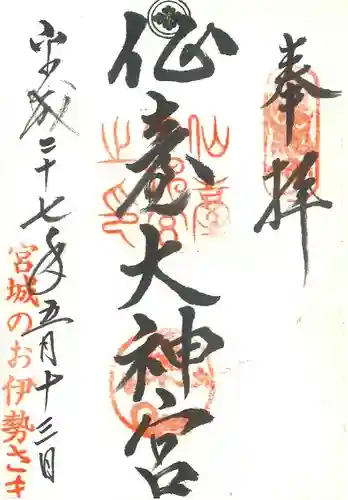 奉拝
仙臺大神宮
平成二十七年五月十三日
宮城のお伊勢さま